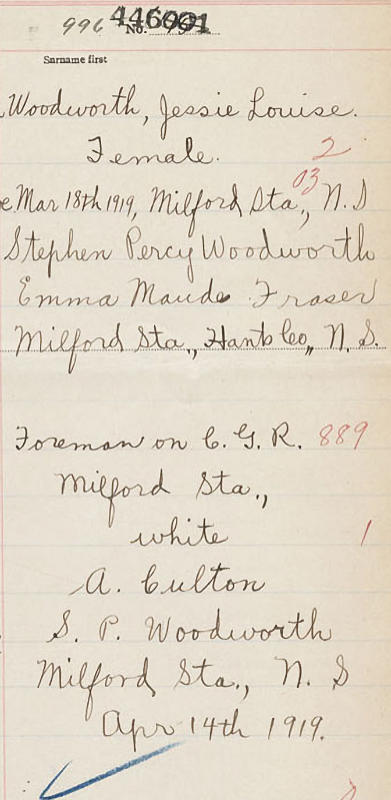 996 446001
No.
Surname first
Woodworth, Jessie Louise.
Female. 2
03
e Mar 18th 1919, Milford Sta., N.S
Stephen Percy Woodworth
Emma Maude Fraser
Milford Sta., Hants Co., N.S.
Foreman on C.G.R. 889
Milford Sta.,
white 1
A. Culton
S. P. Woodworth
Milford Sta., N.S
Apr 14th 1919.